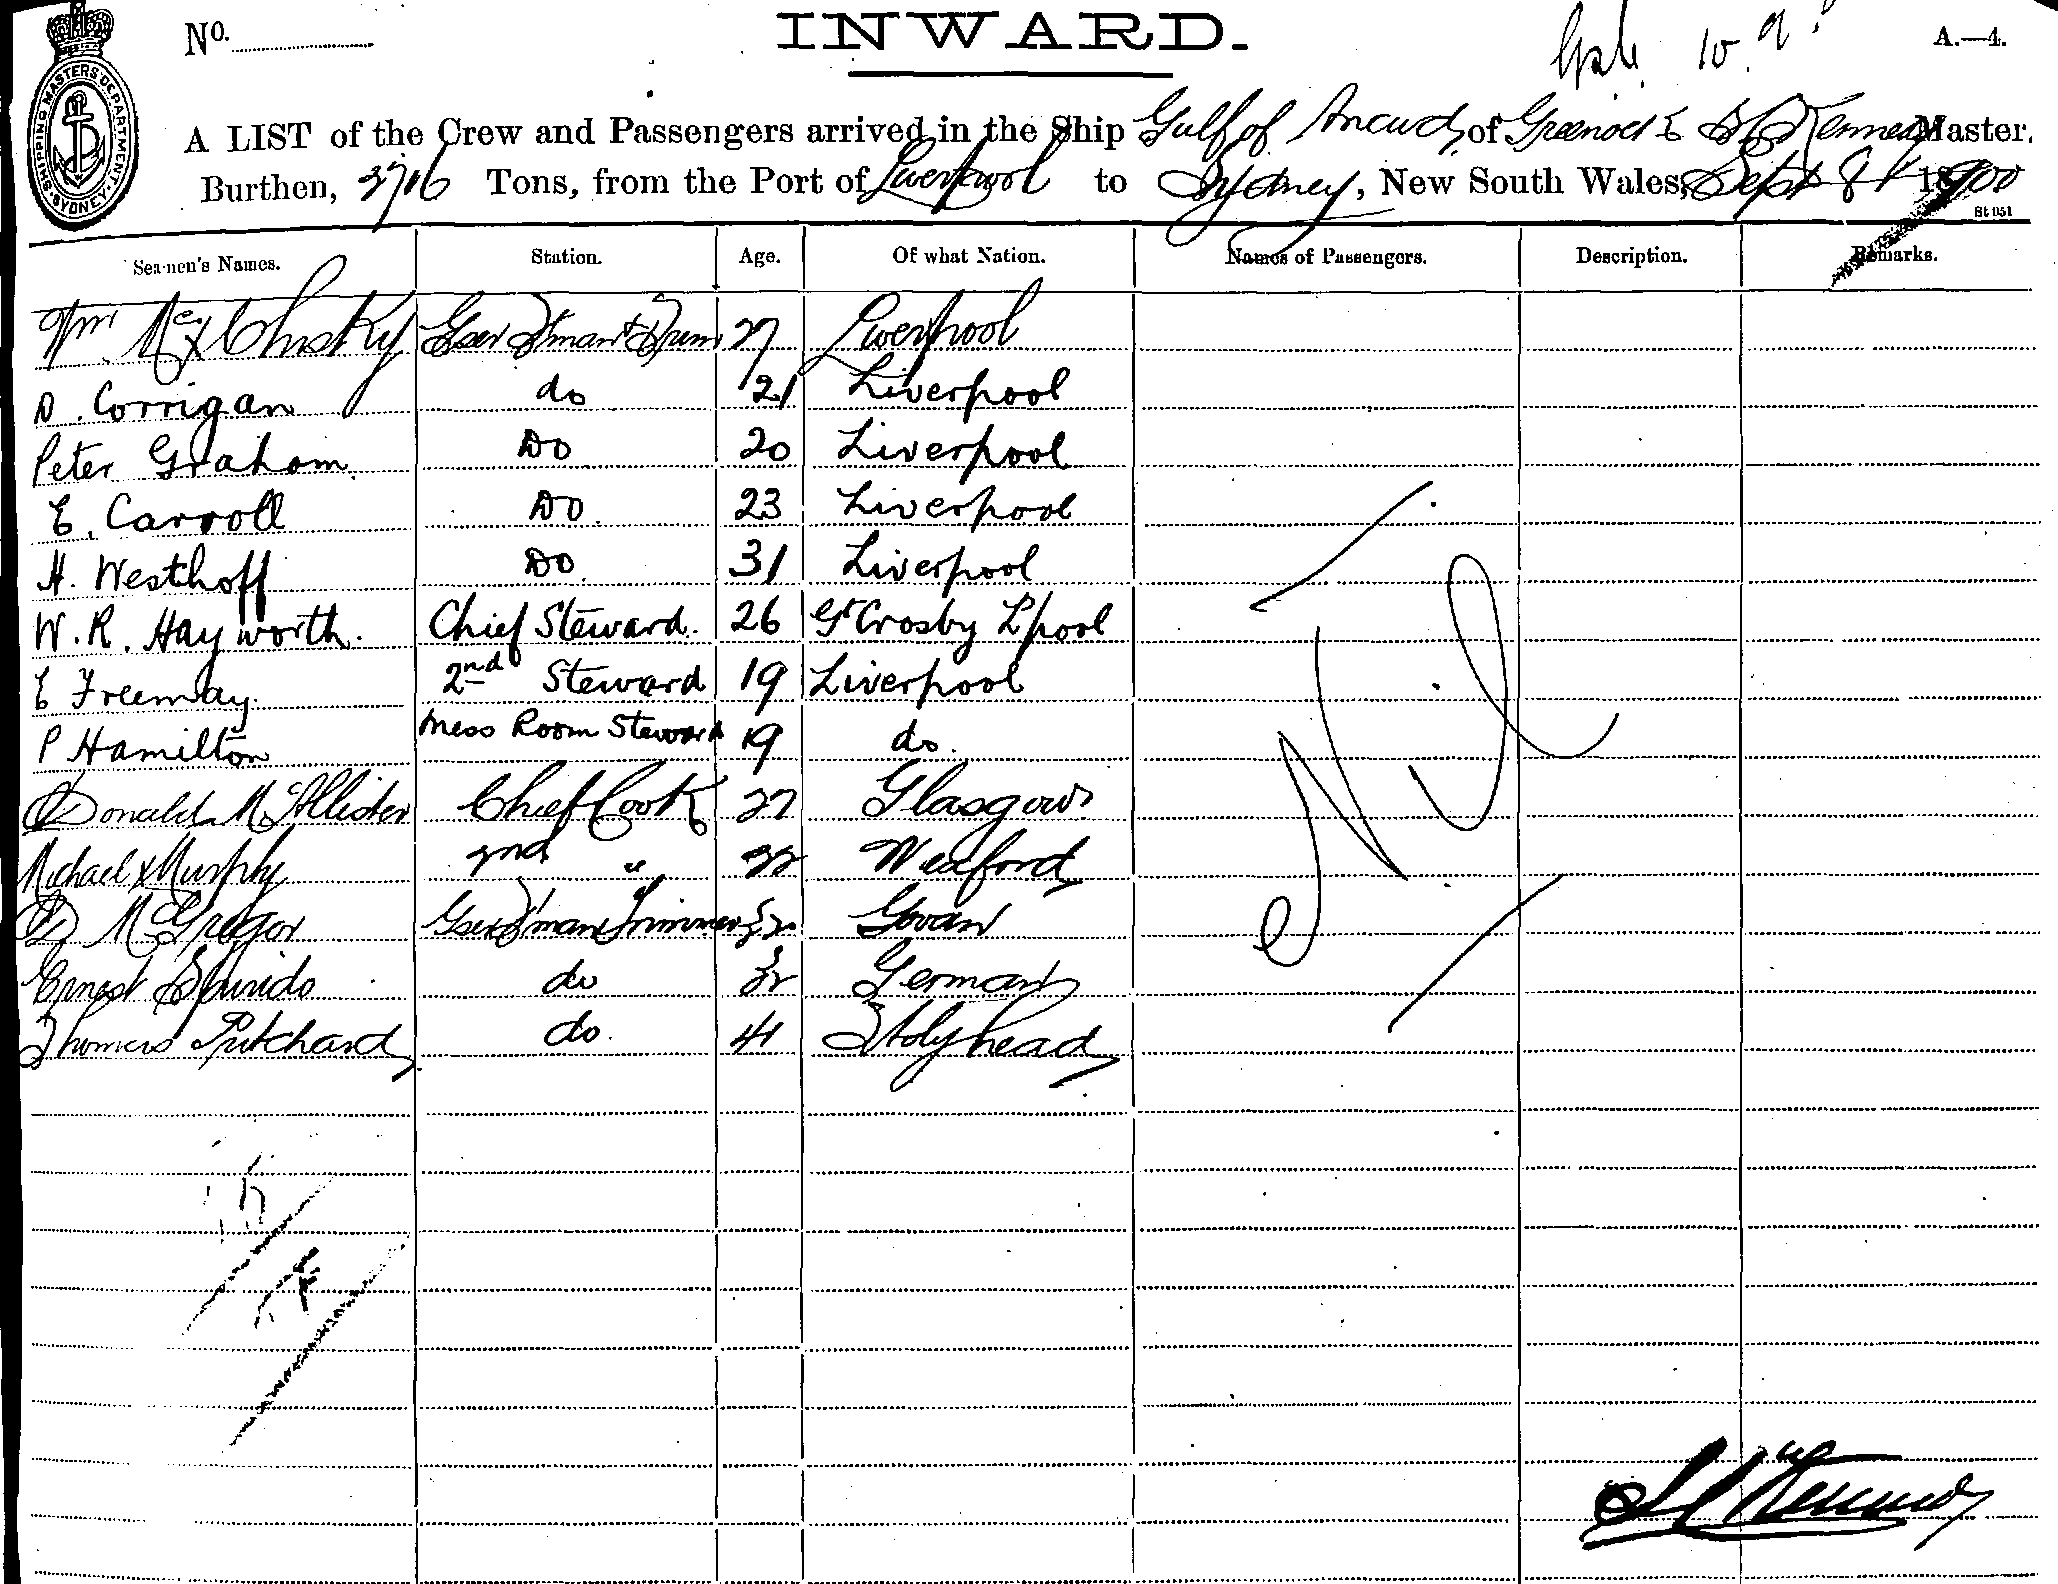 No.
INWARD.
A.—4.
SHIPPING MASTERS DEPARTMENT. SYDNEY.
A LIST of the Crew and Passengers arrived in the Ship Gulf of Ancud, of Greenock Kennedy Master.
Burthen, 2716 Tons, from the Port of Liverpool to Sydney, New South Wales, Sept 8th 1900
St 051
Seamen's Names. Station. Age. Of what Nation. Names of Passengers. Description. Remarks.
Wm Mc x Clusky 27 Liverpool
D. Corrigan do 21 Liverpool
Peter Graham. Do 20 Liverpool
E. Carroll Do. 23 Liverpool
H. Westhoff Do. 31 Liverpool
W. R. Hayworth. Chief Steward. 26 Gt Crosby L'pool
E Freemay. 2nd Steward 19 Liverpool
P Hamilton Mess Room Steward 19 do.
Donald McAllister Chief Cook 27 Glasgow
Michael x Murphy 2nd " Wexford
D McGregor Trimmer Govan
Ernest do 32 German
Thomas Pritchard do. 41 Holyhead
Nil
Kennedy